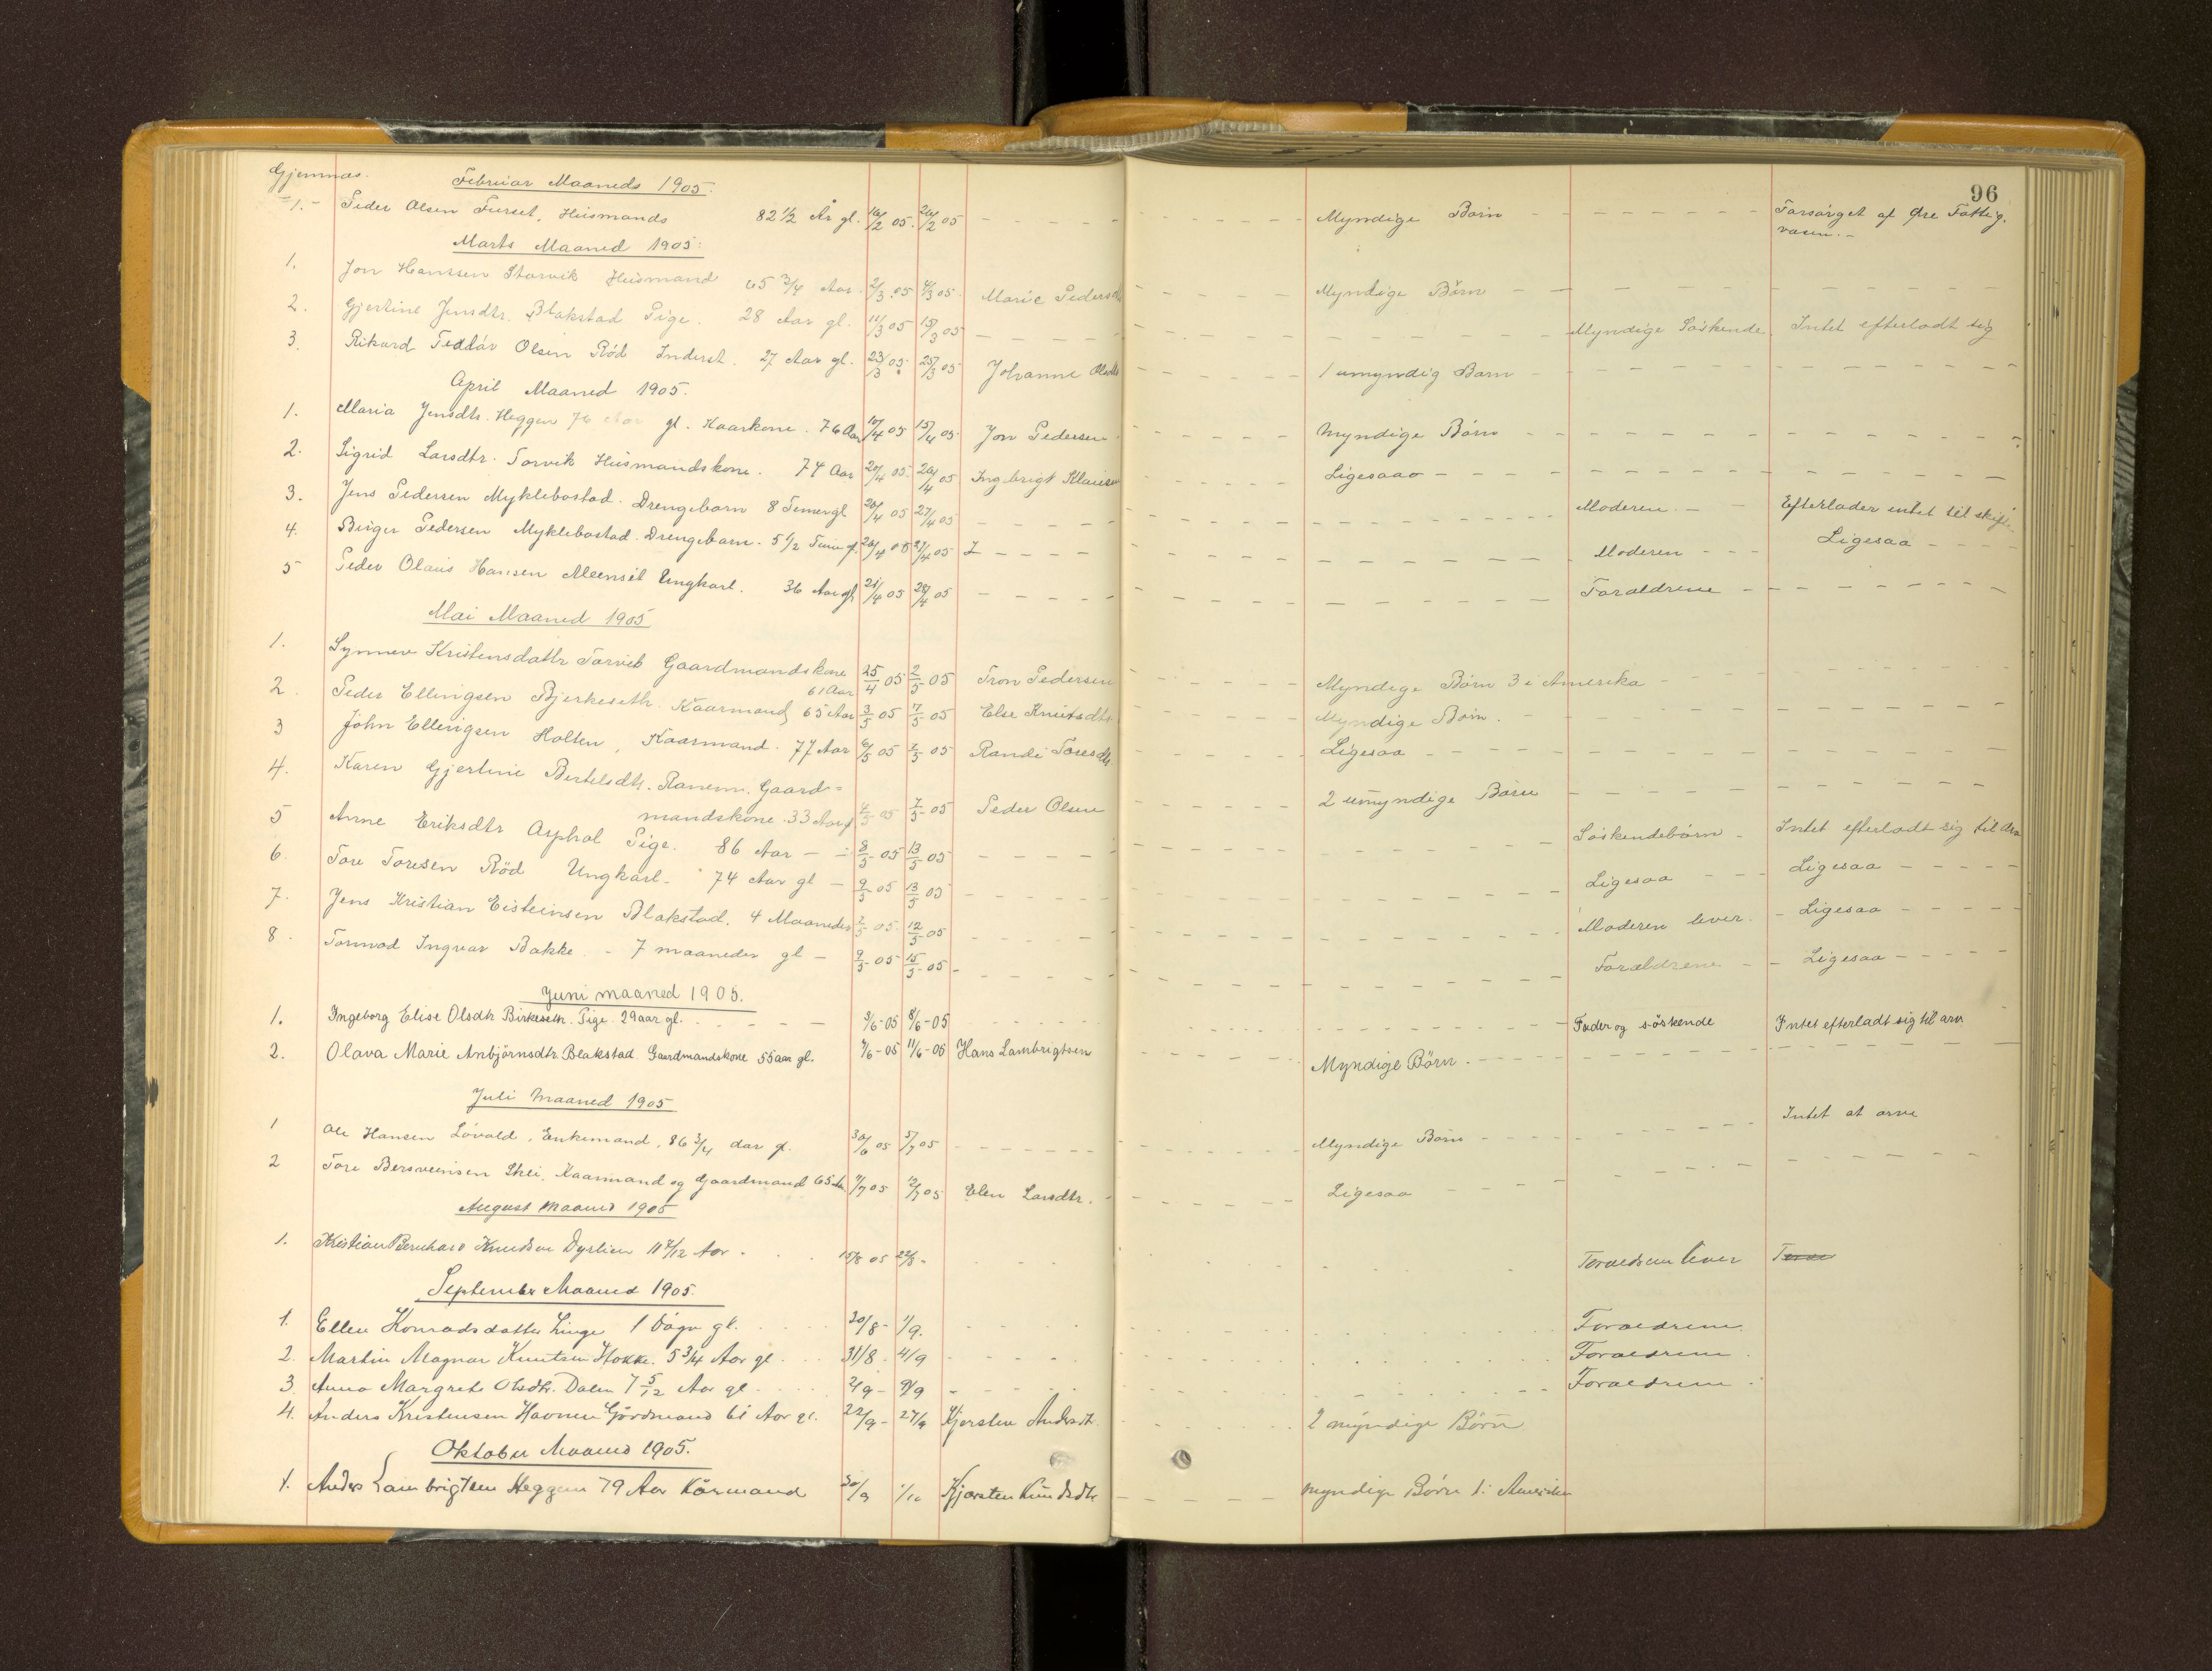 96
Gjemnæs.
Februar Maaneds 1905.
1. Peder Olsen Furset, Husmands 82 1/2 År gl. 16/2 05. 20/2 05 Myndige Børn Forsørget af Øre Fattig-
væsen.
Marts Maaned 1905.
1. Jon Hanssen Storvik Husmand 65 3/4 Aar. 2/3 05 4/3 05. Marie Pedersdtr Myndige Börn
2. Gjertine Jensdtr. Blakstad Pige. 28 Aar gl. 11/3 05 15/3 05 Myndige Söskende Intet efterladt sig
3. Rikard Olsen Röd Inderst. 27 Aar gl. 23/3 05. 25/3 05 Johanne Olsdtr 1 umyndig Barn
April Maaned 1905.
1. Maria Jensdtr. Heggem 76 Aar gl. Kaarkone. 76 Aar 10/4 05 15/4 05. Jon Pedersen Myndige Börn
2. Sigrid Larsdtr. Torvik Husmandskone. 74 Aar 20/4 05. 26/4 05 Ingebrigt Klausen Ligesaa
3. Jens Pedersen Myklebostad. Drengebarn 8 Timer gl 20/4 05 27/4 05 Moderen Efterlader intet til skifte
4. Birger Pedersen Myklebostad. Drengebarn. 5 1/2 Time gl. 20/4 05 27/4 05 Moderen Ligesaa
5 Peder Olaus Hansen Meensét Ungkarl. 36 Aar gl 21/4 05 28/4 05 Forældrene
Mai Maaned 1905
1. Synnev Kristensdattr Torvik Gaardmandskone 25/4 05 2/5 05 Tron Pedersen Myndige Börn 3 i Amerika
61 Aar
2. Peder Ellingsen Bjerkeseth. Kaarmand 65 Aar 3/5 05 7/5 05 Else Knutsdtr. Myndige Börn.
3 John Ellingsen Holten, Kaarmand. 77 Aar 6/5 05 05 Randi Toresdtr Ligesaa
4. Karen Gjertine Bertelsdtr. Ranem. Gaard=
mandskone. 33 Aar gl 4/5 05 7/5 05 Peder Olsen 2 umyndige Börn
5 Anne Eriksdtr Asphol Pige. 86 Aar 8/5 05 13/5 05 Söskendebörn Intet efterladt sig til Arv
6. Tore Toresen Röd Ungkarl. 74 Aar gl 9/5 05 13/5 05 Ligesaa Ligesaa
7. Jens Kristian Eisteinsen Blakstad. 4 Maaneder 05. 12/5 05 Moderen lever. Ligesaa
8. Tormod Ingvar Bakke. 7 maaneder gl 9/5 05 15/5 05 Forældrene Ligesaa
Juni maaned 1905.
1. Ingeborg Elise Olsdtr Birkeseth. Pige. 29 aar gl. 3/6-05 8/6-05 Fader og söskende Intet efterladt sig til arv.
2. Olava Marie Anbjörnsdtr. Blakstad. Gaardmandskone 55 aar gl. 4/6-05 11/6-05 Hans Lambrigtsen Myndige Börn.
Juli Maaned 1905
1 Ole Hansen Lövold, Enkemand, 86 3/4 Aar gl. 30/6 05 5/7 05 Myndige Börn Intet at arve
2 Tore Bersveinsen Skei, Kaarmand og Gaardmand 65 Aar 05 12/7 05 Elen Larsdtr. Ligesaa
August Maaned 1905
1. Kristian Bernhard Knudsen Dyrlien 11 7/12 Aar. 15/8 05 22/8. Forældrene lever
September Maaned 1905.
1. Ellen Konradsdatter Linge 1 Dögn gl. 30/8 - 1/9. Forældrene.
2. Martin Magnar Knutsen Hokke. 5 3/4 Aar gl. 31/8. 4/9 Forældrene.
3. Anna Margrete Olsdtr. Dalen 7 5/12 Aar gl. 2/9 - 9/9 Forældrene.
4. Anders Kristensen Havnen Gårdmand 61 Aar gl. 22/9 - 27/9 Kjersten Andersdtr. 2 myndige Börn
Oktober Maaned 1905.
1. Anders Lambrigtsen Heggem 79 Aar Kårmand 30/9 1/10 Kjersten Knudsdtr myndige Börn 1 i Amerika